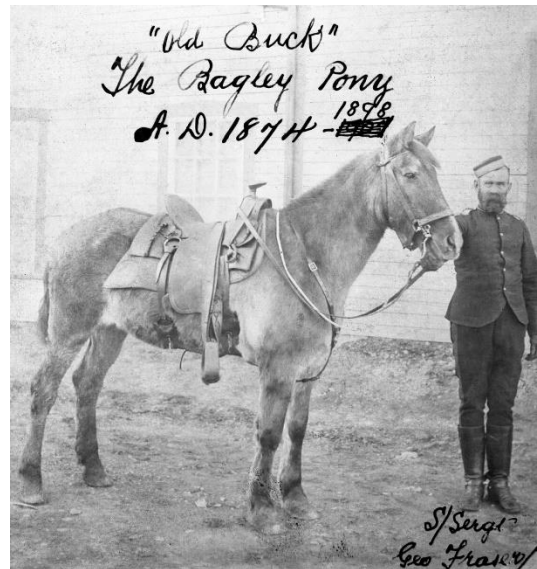 "Old Buck"
The Bagley Pony
1898
A. D. 1874 -
S/Sergt
Geo Fraser